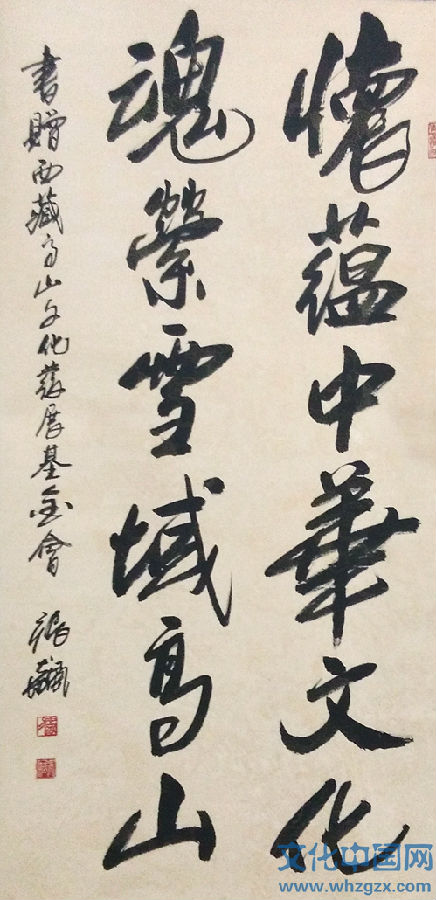 懷蘊中華文化
魂縈雪域高山
書贈西藏高山文化發展基金會
張飈
文化中国网
www.whzgzx.com